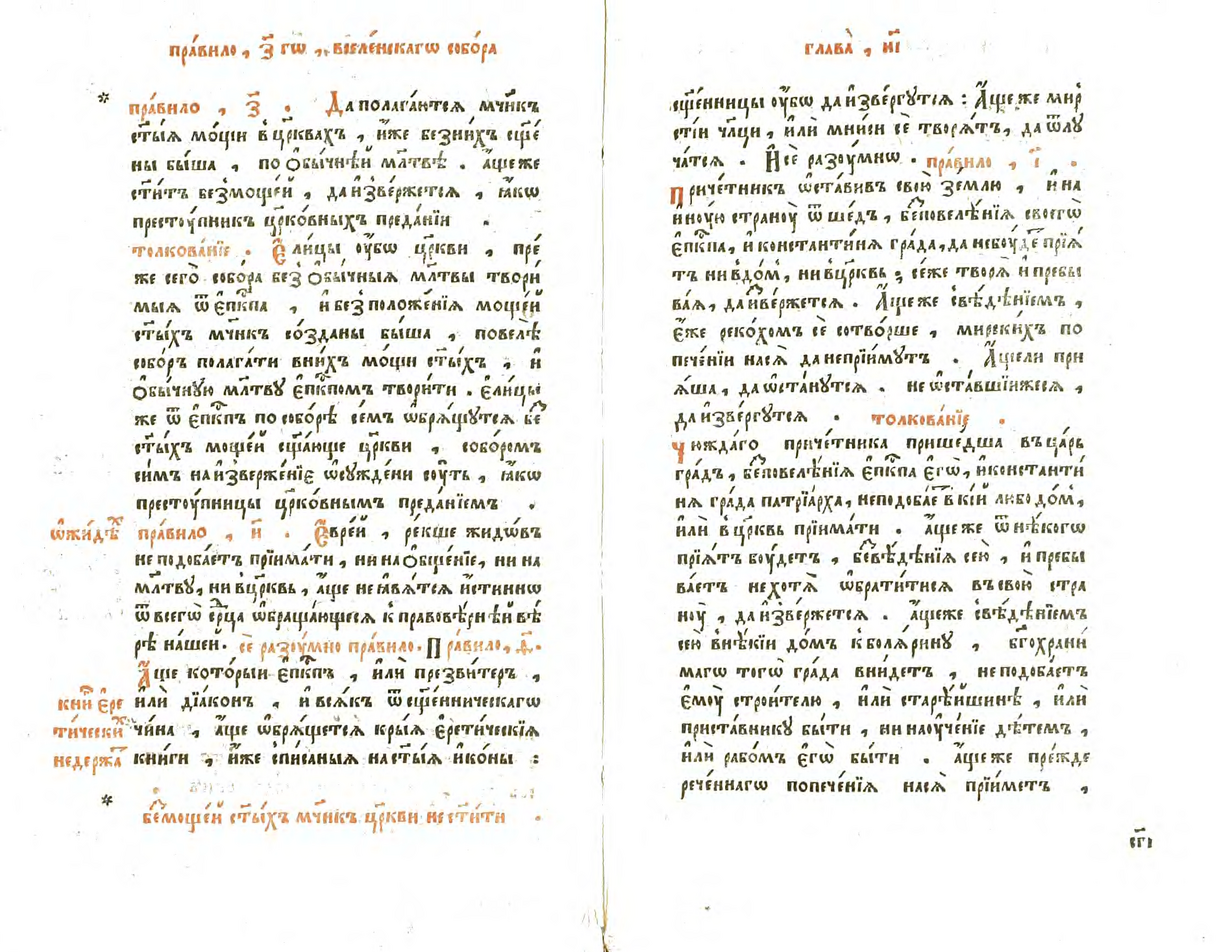 пра́вило , з҃ гѡ , вселе́нскагѡ собо́ра
* пра́вило , з҃ . Да полага́ютсѧ мч҃нкъ
ст҃ы́ѧ мо́щи въцр҃квахъ , и҆́же без̾ни́хъ сщ҃е
ны бы́ша , по ѻ҆бы́чнѣй мл҃твѣ . а҆́ще же
ст҃и́тъ без̾моще́й , да и҆зве́ржетсѧ , ꙗ҆́кѡ
престоу́пникъ цр҃ко́вныхъ преда́нїи .
толкова́нїе . Є҆ли́цы оу҆́бѡ цр҃кви , пре́
же сегѡ̀ собо́ра без̾ ѻ҆бы́чныѧ мл҃твы твори́
мыѧ ѿ є҆пк҃па , и҆ без̾ положе́нїѧ моще́й
ст҃ы́хъ мч҃нкъ со́зданы бы́ша , повелѣ̀
собо́ръ полага́ти вни́хъ мо́щи ст҃ы́хъ , и҆
ѻ҆бы́чную мл҃тву є҆пк҃помъ твори́ти . є҆ли́цы
же ѿ є҆пк҃пъ по собо́рѣ семъ ѡ҆брѧ́щутсѧ бе́
ст҃ы́хъ моще́й сщ҃а́юще цр҃кви , собо́ромъ
си́мъ на и҆зверже́нїе ѡ҆су́ждени соу́ть , ꙗ҆́кѡ
престоу́пницы цр҃ко́внымъ преда́нїемъ .
ѡ҆жидѣ́х пра́вило , и҃ . Є҆вре́й , ре́кше жидѡ́въ
не подоба́етъ прїима́ти , ни на ѻ҆бще́нїе, ни на
мл҃тву, ни въцр҃квь, а҆́ще не ꙗ҆вѧ́тсѧ и҆́стиннѡ
ѿ всегѡ̀ ср҃ца ѡ҆браща́ющесѧ к правовѣ́рнѣй вѣ́
рѣ на́шей. сѐ разоу́мно пра́вило. Пра́вило, ѳ҃.
А҆́ще кото́рыи є҆пк҃пъ , и҆лѝ презви́теръ ,
кни́г є҆ре и҆лѝ дїа́конъ , и҆ всѧ́къ ѿ сщ҃е́нническагѡ
ти́чески́х чи́на , а҆́ще ѡ҆брѧ́щетсѧ кры́ѧ є҆рети́ческїѧ
не держа́т кни́ги , и҆́же спи́саныѧ на ст҃ы́ѧ и҆ко́ны :
* бе́з моще́й ст҃ы́хъ мч҃нкъ цр҃кви не ст҃и́ти .
глава̀ , и҃і
сщ҃е́нницы оу҆́бѡ да и҆зве́ргутсѧ : А҆́ще же мир
сті́и чл҃цы , и҆лѝ мни́си сѐ творѧ́тъ, да ѿлу
ча́тсѧ . И҆ сѐ разоу́мнѡ . пра́вило , і҃ .
Приче́тникъ ѡ҆ста́вивъ свою̀ зе́млю , и҆ на
и҆ноую страноу̀ ѿше́дъ, бе́з повелѣ́нїѧ своегѡ̀
є҆пк҃па, и҆ константи́нѧ гра́да, да не боу́детъ прїѧ́
тъ ни в до́мъ, ни въцр҃квь ; се́же творѧ̀ и҆ пребы
ва́ѧ, да и҆зве́ржетсѧ . А҆́ще же с̾вѣ́дѣнїемъ ,
є҆́же реко́хомъ сѐ сотво́рше , мирски́хъ по
пече́нїи насѧ̀ да не прїи́мутъ . А҆́щели при
ѧ́ша, да ѡ҆ста́нутсѧ . не ѡ҆ста́вшїижесѧ ,
да и҆зве́ргутсѧ . толкова́нїе .
Чюжда́го приче́тника прише́дша въ ца́рь
гра́дъ, бе́з повелѣ́нїѧ є҆пк҃па є҆гѡ̀, и҆ константи́
нѧ гра́да патрїа́рха, не подоба́етъ в кі́й либо до́мъ,
и҆лѝ в цр҃квь прїима́ти . а҆́ще же ѿ нѣ́когѡ
прїѧ́тъ боу́детъ , бе́з вѣ́дѣнїѧ сею̀ , и҆ пребы
ва́етъ не хотѧ̀ ѡ҆брати́тисѧ въ свою̀ стра
ноу̀ , да и҆зве́ржетсѧ . а҆́ще же с̾вѣ́дѣнїемъ
сею̀ в нѣ́кїи до́мъ к болѧ́рину , бг҃охрани́
магѡ тогѡ̀ гра́да вни́детъ , не подоба́етъ
є҆моу̀ строи́телю , и҆лѝ старѣ́йшинѣ , и҆лѝ
приста́внику бы́ти , ни на оу҆че́нїе дѣ́темъ ,
и҆лѝ рабо́мъ є҆гѡ̀ бы́ти . А҆́ще же пре́жде
рече́ннагѡ попече́нїѧ насѧ̀ прїи́метъ ,
сг҃і